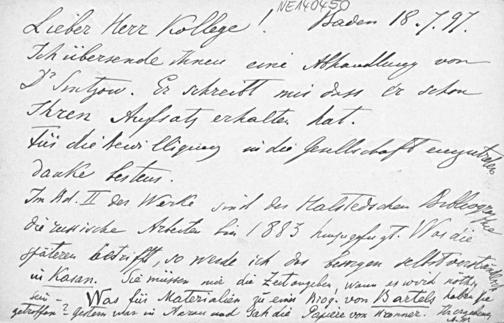 NE140450
Lieber Herr Kollege! Baden 18.7.97.
Ich übersende ihnen eine Abhandlung von
Dr Sintzow. Er schreibt mir dass er schon
Ihren Aufsatz erhalten hat.
Für die bewilligung in die Gesellschaft einzutreten
danke bestens.
Im Bd. II des Werke sind des Halstedschen Bibliographie
die russische Arbeiten bis 1883 hinzugefügt. Was die
späteren betrifft, so werde ich das besorgen selbstverständlich
in Kasan. Sie müssen mir die Zeit angeben, wann es wird nöthig
sein - Was für Materialien zu einer Biog. von Bartels haben Sie
getroffen? Gestern war in und sah die Papiere von